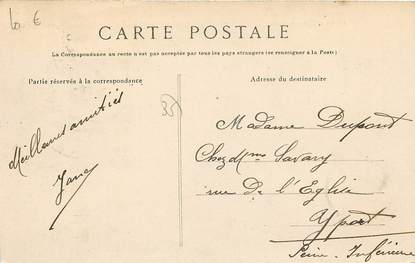 10 €
CARTE POSTALE
La Correspondance au recto n'est pas acceptée par tous les pays étrangers (se renseigner à la Poste)
Partie réservée à la correspondance
Adresse du destinataire
35
Meilleures amitiés
Jane
Madame Dupont
Chez Mme Savary
rue De l'Eglise
Yport
Seine-Inférieure